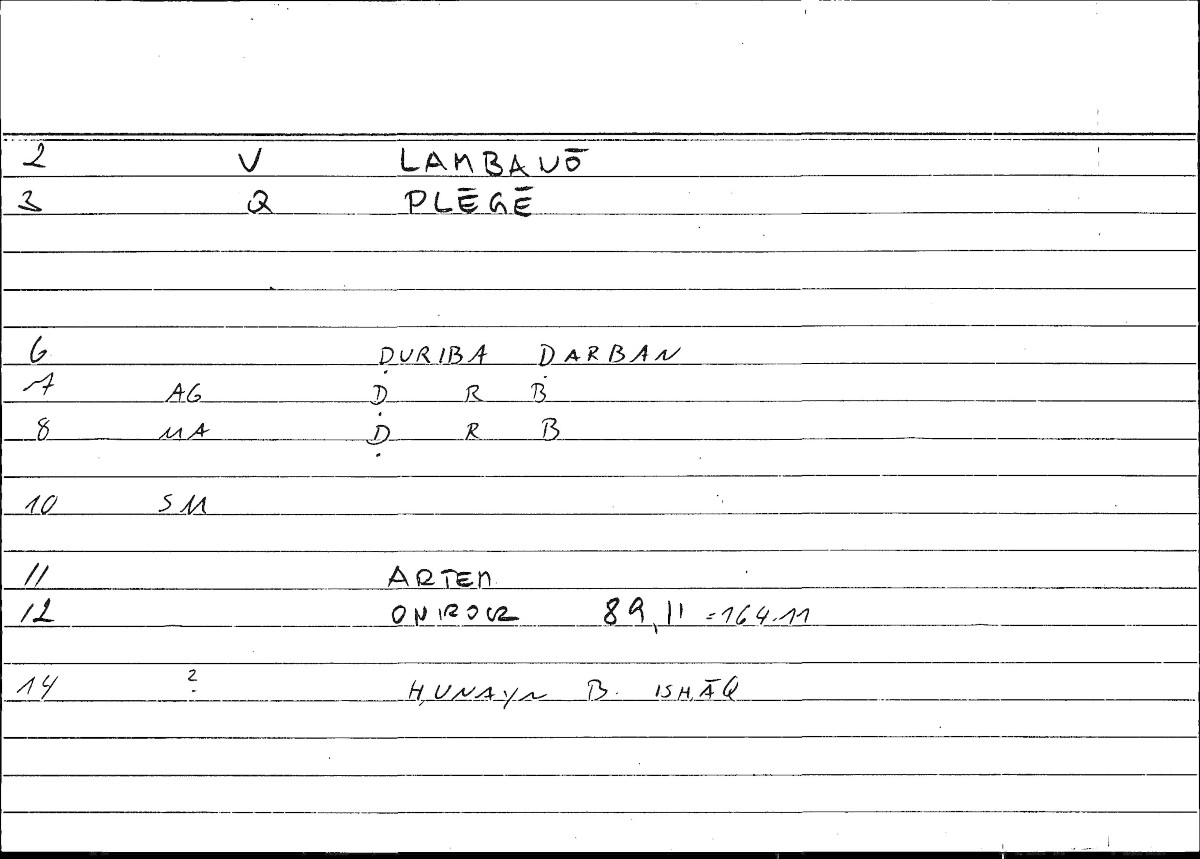 2 V LAMBANŌ
3 Q PLĒGĒ
6 ḌURIBA ḌARBAN
7 AG Ḍ R B
8 MA Ḍ R B
10 SM
11 ARTEM
12 ONIROCR 89,11 =164.11
14 ? ḤUNAYN B. ISḤĀQ